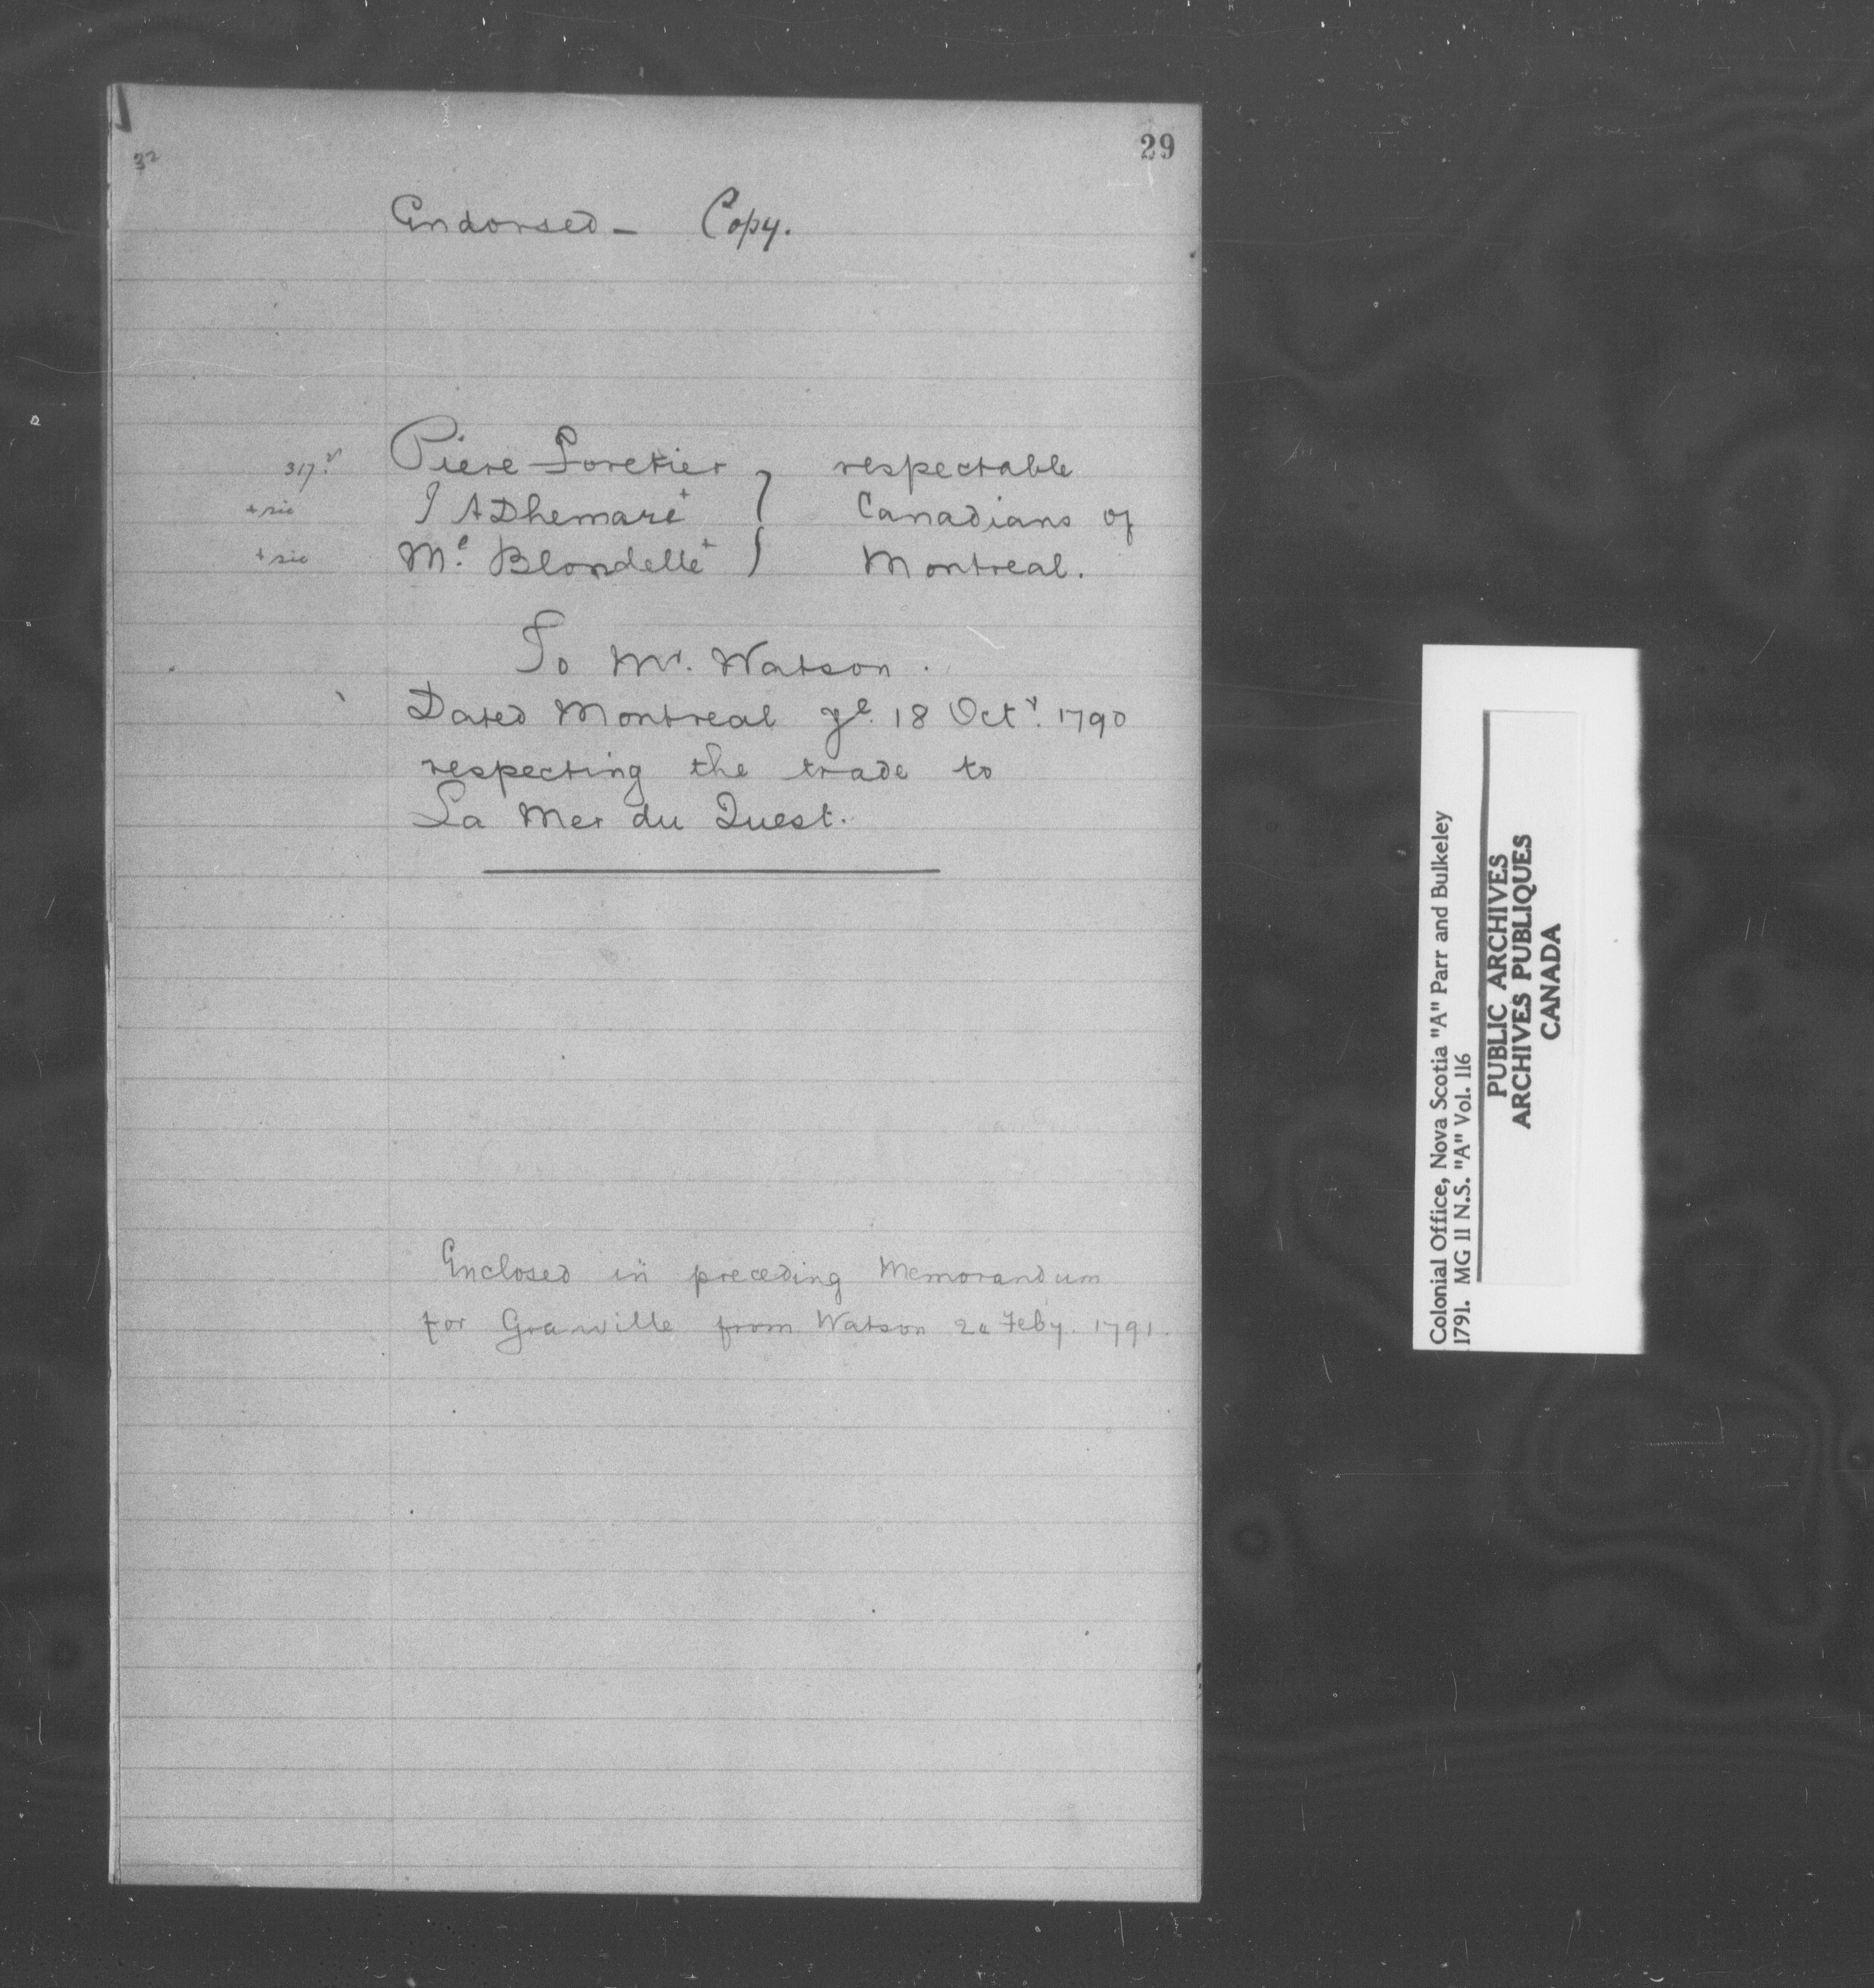 29
32
Endorsed – Copy.
317.v Piere Foretier } respectable
+ sic J A Dhemare+ } Canadians of
+ sic M.e Blondelle+ } Montreal.
To Mr. Watson.
Dated Montreal ye. 18 Octr. 1790
respecting the trade to
La Mer du Ouest.
Enclosed in preceding Memorandum
for Granville from Watson 20 Feby. 1791.
Colonial Office, Nova Scotia "A" Parr and Bulkeley
1791. MG 11 N.S. "A" Vol. 116
PUBLIC ARCHIVES
ARCHIVES PUBLIQUES
CANADA